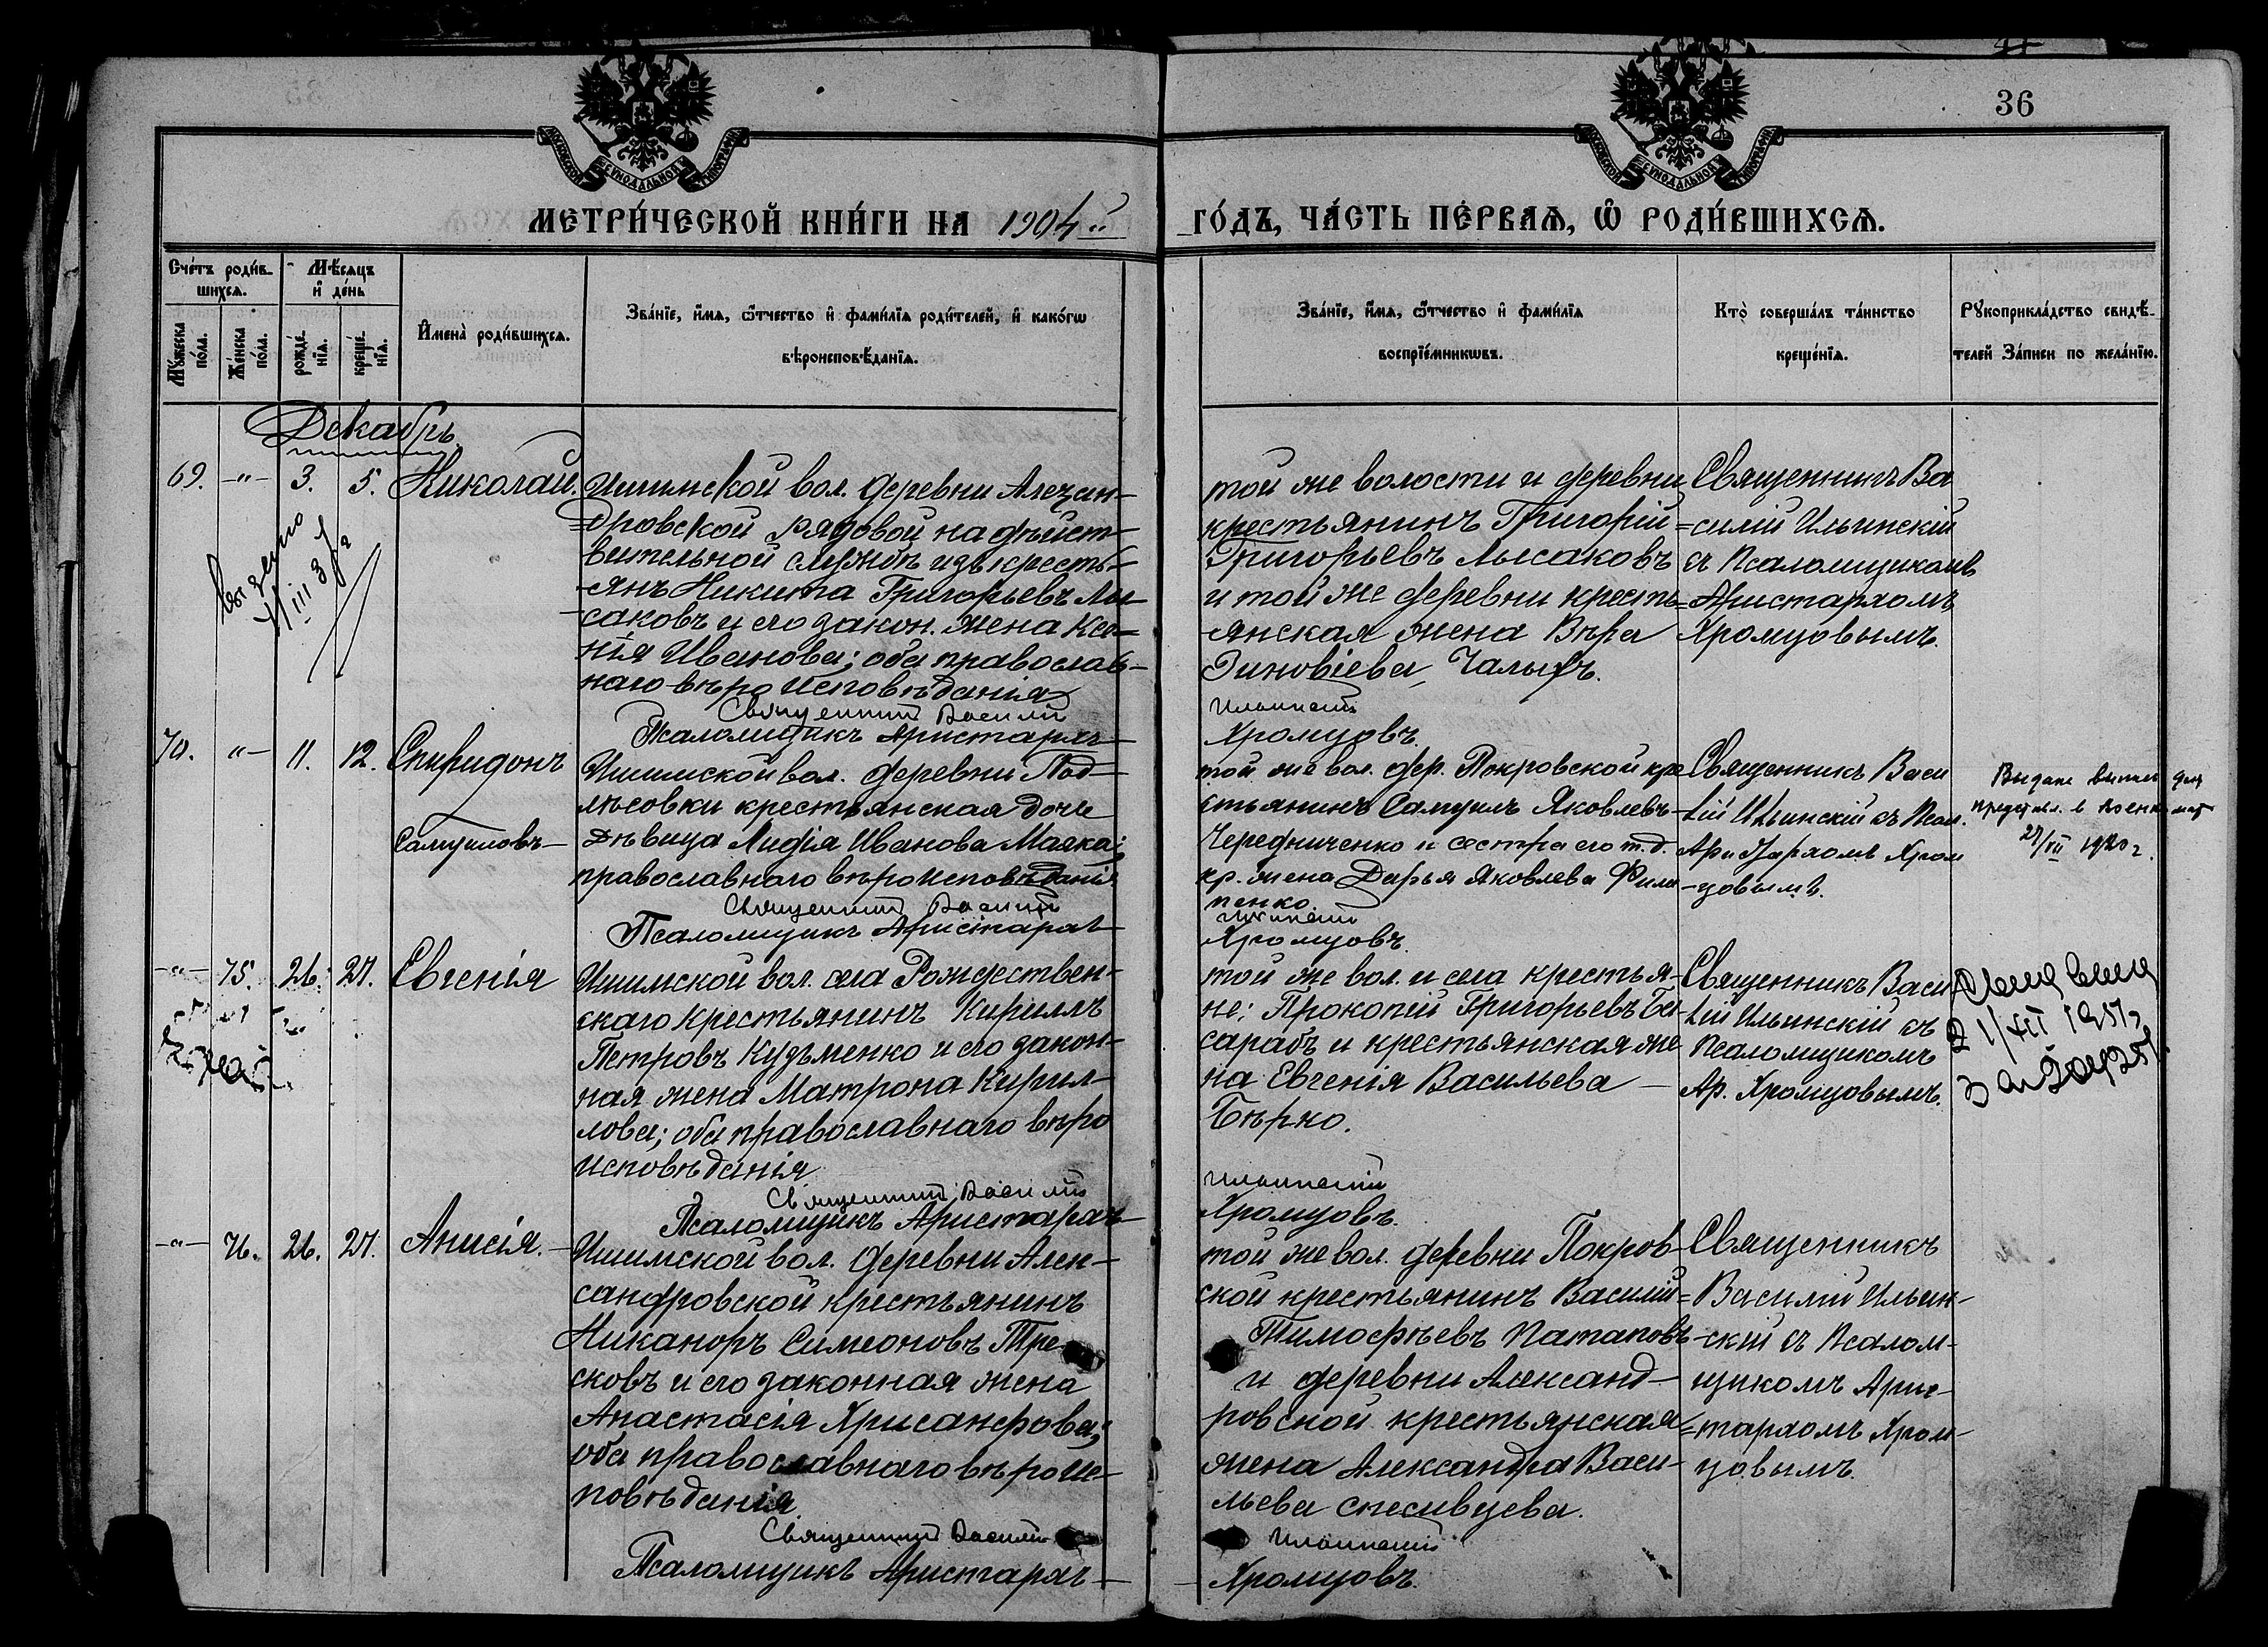 36
МЕТРИ́ЧЕСКОЙ КНИ́ГИ НА 1904 й
ГО́ДЪ, ЧА́СТЬ ПЕ́РВАѦ, Ѽ РОДИ́ВШИХСѦ.
Сче́тъ роди́в-
шихсѧ.
Мѣ́сяцъ
и҆ де́нь
Мꙋ́жеска
по́ла.
Же́нска
по́ла.
рожде́-
нїѧ.
креще́-
нїѧ.
И҆мена̀ роди́вшихсѧ.
Зва́нїе, и҆́мѧ, ѻ҆́тчество и҆ фами́лїѧ роди́телей, и҆ како́гѡ
вѣроисповѣ́данїѧ.
Зва́нїе, и҆́мѧ, ѻ҆́тчество и҆ фами́лїѧ
воспрїе́мникѡвъ.
Кто̀ соверша́лъ та́инство
креще́нїѧ.
Рꙋкоприкла́дство свидѣ́-
телей За́писи по жела́нїю.
Декабрь
69. -"- 3. 5. Николай.
Ишимской вол. деревни Алекзан-
дровской рядовой на дѣйст-
вительной службѣ изъ кресть-
янъ Никита Григорьевъ Лы-
саковъ и его закон. жена Ксе-
нія Иванова; оба православ-
наго вѣроисповѣданія
Священникъ Василій
Псаломщикъ Аристархъ
той же волости и деревни
крестьянинъ Григорій
Григорьевъ Лысаковъ
и той же деревни кресть-
янская жена Вѣра
Зиновіева Чалыхъ.
Ильинскій
Хромцовъ.
Священникъ Ва
силій Ильинскій
съ Псаломщикомъ
Аристархомъ
Хромцовымъ.
70. "- 11. 12. Спиридонъ
Самуиловъ-
Ишимской вол. деревни Под-
лѣсовки крестьянская дочь
дѣвица Лидія Иванова Маяка;
православнаго вѣроисповѣданія
Священникъ Василій
Псаломщикъ Аристархъ
той же вол. дер. Покровской кре
стьянинъ Самуилъ Яковлевъ
Чередниченко и сестра его т.д.
кр. жена Дарья Яковлева Фили
пенко.
Ильинскій
Хромцовъ.
Священникъ Васи
лій Ильинскій съ Псал.
Аристархомъ Хром
цовымъ.
Выдана выпис для
представл. в военкомат
1920 г.
-"- 75. 26. 27. Евгенія
Ишимской вол. села Рождествен-
скаго крестьянинъ Кириллъ
Петровъ Кузьменко и его закон-
ная жена Матрона Кирил-
лова; оба православнаго вѣро
исповѣданія
Священникъ Василій
Псаломщикъ Аристархъ
той же вол. и села крестья-
не; Прокопій Григорьевъ Бе-
сарабъ и крестьянская же
на Евгенія Васильева
Бѣрко.
Ильинскій
Хромцовъ.
Священникъ Васи
лій Ильинскій съ
Псаломщикомъ
Ар. Хромцовымъ.
-"- 76. 26. 27. Анисія.
Ишимской вол. деревни Алек-
сандровской крестьянинъ
Никаноръ Симеоновъ Тре-
сковъ и его законная жена
Анастасія Хрисанфова;
оба православнаго вѣроис-
повѣданія
Священникъ Василій
Псаломщикъ Аристархъ
той же вол. деревни Покров-
ской крестьянинъ Василій
Тимофѣевъ Патаповъ
и деревни Александ-
ровской крестьянская
жена Александра Васи-
льева Спесивцева.
Ильинскій
Хромцовъ.
Священникъ
Василій Ильин-
скій съ Псалом-
щикомъ Арис-
тархомъ Хром-
цовымъ.